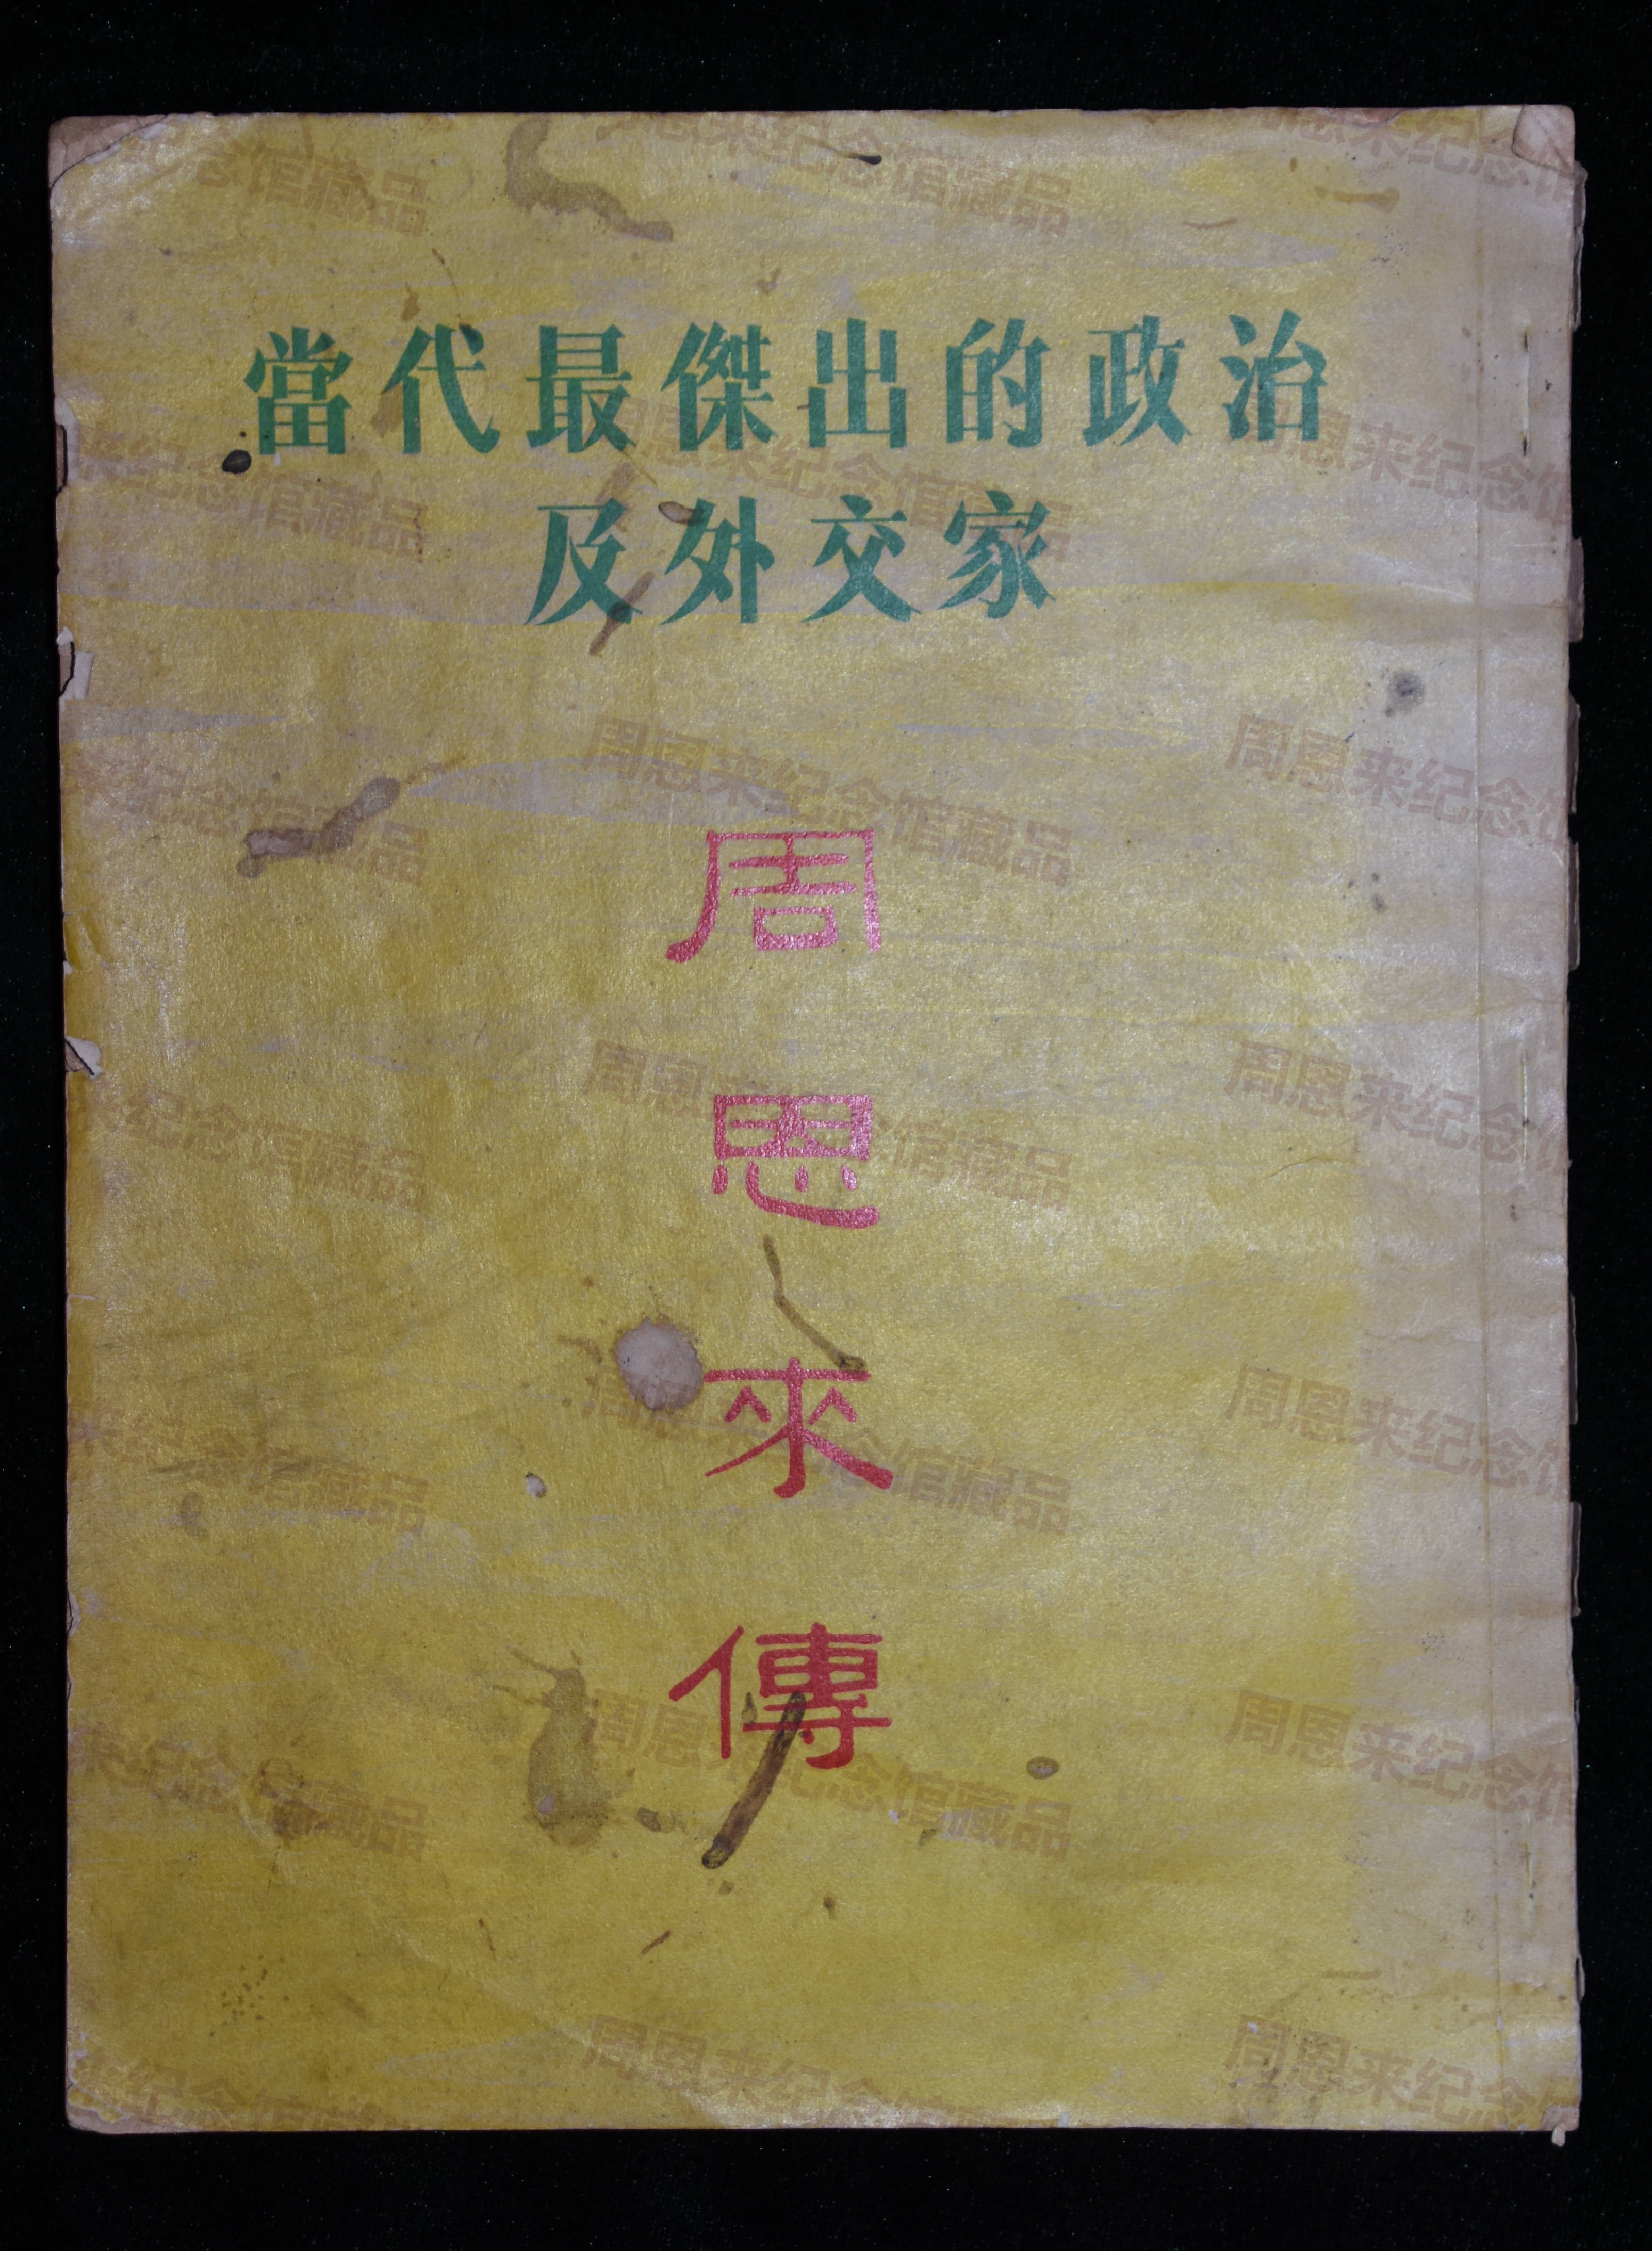 當代最傑出的政治
及外交家
周恩來傳
周恩来纪念馆藏品